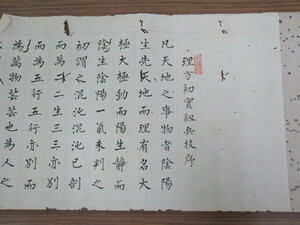 理方初實劔兵技序
凡天地之事物者陰陽
生先天地而理有名大
極大極動而陽生靜而
陰生陰陽一氣未判之
初謂之混沌混沌已剖
而為二二生三三亦別
而為五行五行亦別而
為萬物芸芸也為人之